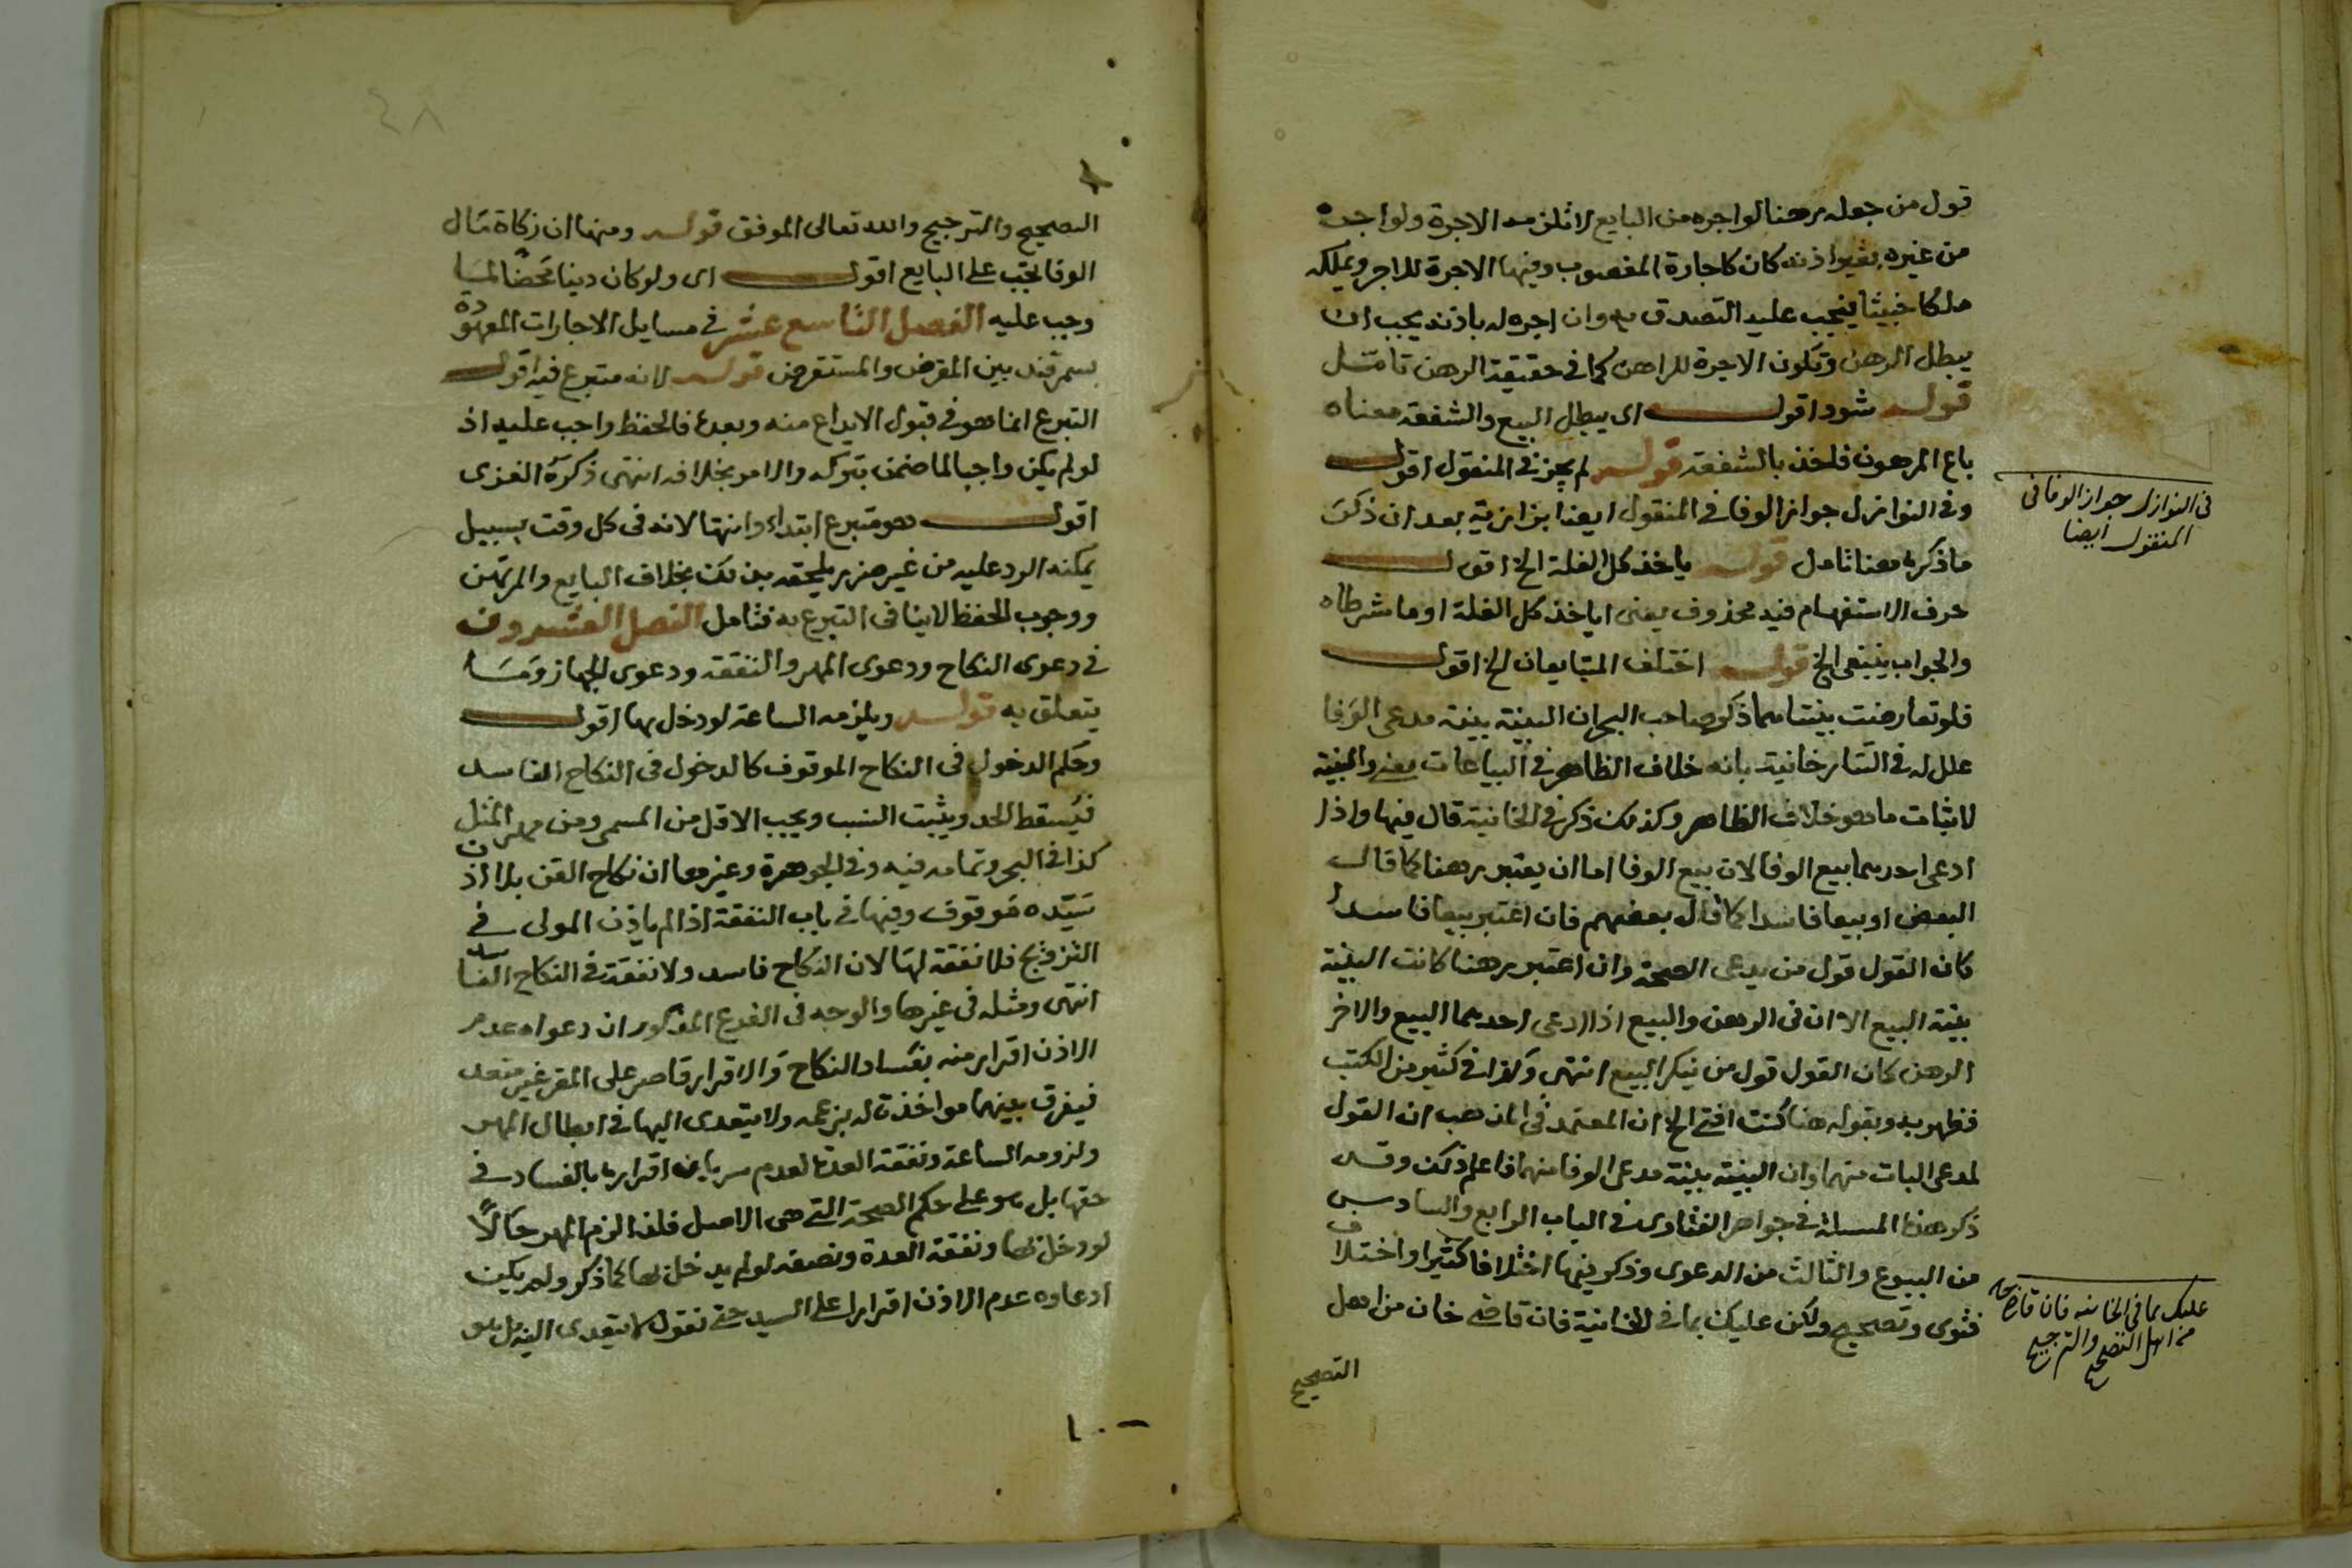 قول من جعله رهنا لو اجره من البايع لا تلزمه الاجرة ولو اجره
من غيره بغير اذنه كان كاجارة المغصوب وفيها الاجرة للاجر ويملكه
ملكا خبيثا فيجب عليه التصدق به وان اجره له باذنه يجب ان
يبطل الرهن وتكون الاجرة للراهن كما في حقيقة الرهن تامل
قوله شود اقول اى يبطل البيع والشفعة معناه
باع المرهون فاخذ بالشفعة قوله لم يجز في المنقول اقول
وفي النوازل جواز الوفا في المنقول ايضا بزازية بعد ان ذكر
ما ذكره هنا تامل قوله ياخذ كل الغلة الخ اقول
حرف الاستفهام فيه محذوف يعنى اياخذ كل الغلة او ما شرطاه
والجواب ينبغى الخ قوله اختلف المتبايعان الخ اقول
فلو تعارضت بينتاهما ذكر صاحب البحر ان البينة بينة مدعى الوفا
علل له في التتارخانية بانه خلاف الظاهر في البياعات يعنى والبينة
لاثبات ما هو خلاف الظاهر وكذلك ذكر في الخانية قال فيها واذا
ادعى احدهما بيع الوفا لان بيع الوفا اما ان يعتبر رهنا كما قال
البعض او بيعا فاسدا كما قال بعضهم فان اعتبر بيعا فاسدا
كان القول قول من يدعى الصحة وان اعتبر رهنا كانت البينة
بينة البيع الا ان في الرهن والبيع اذا ادعى احدهما البيع والاخر
الرهن كان القول قول من ينكر البيع انتهى وكذا في كثير من الكتب
فظهر به وبقوله هنا كنت افتى الخ ان المعتمد في المذهب ان القول
لمدعى البات منهما وان البينة بينة مدعى الوفا منهما فاعلم ذلك وقد
ذكر هذه المسئلة في جواهر الفتاوى في الباب الرابع والسادس
من البيوع والثالث من الدعوى وذكر فيها اختلافا كثيرا واختلاف
فتوى وتصحيح ولكن عليك بما في الخانية فان قاضى خان من اهل
التصحيح
في النوازل جواز الوفا في
المنقول ايضا
عليك بما في الخانية فان قاضيخان
من اهل التصحيح والترجيح
٤٨
التصحيح والترجيح والله تعالى الموفق قوله ومنها ان زكاة مال
الوفا تجب على البايع اقول اى ولو كان دينا محضا لما
وجب عليه الفصل التاسع عشر في مسايل الاجارات المعهودة
بسمرقند بين المقرض والمستقرض قوله لانه متبرع فيه اقول
التبرع انما هو في قبول الايداع منه وبعده فالحفظ واجب عليه اذ
لو لم يكن واجبا لما ضمن بتركه والامر بخلافه انتهى ذكره الغزى
اقول هو متبرع ابتداء وانتها لانه في كل وقت بسبيل
يمكنه الرد عليه من غير ضرر يلحقه بذلك بخلاف البايع والمرتهن
ووجوب الحفظ لا ينافي التبرع به فتامل الفصل العشرون
في دعوى النكاح ودعوى المهر والنفقة ودعوى الجهاز وما
يتعلق به قوله ويلزمه الساعة لو دخل بها اقول
وحكم الدخول في النكاح الموقوف كالدخول في النكاح الفاسد
فيسقط الحد ويثبت النسب ويجب الاقل من المسمى ومن مهر المثل
كذا في البحر وتمامه فيه وفي الجوهرة وغيرها ان نكاح القن بلا اذن
سيده موقوف وفيها في باب النفقة اذا لم ياذن المولى في
التزويج فلا نفقة لها لان النكاح فاسد ولا نفقة في النكاح الفاسد
انتهى ومثله في غيرها والوجه في الفرع المذكور ان دعواه عدم
الاذن اقرار منه بفساد النكاح والاقرار قاصر على المقر غير متعد
فيفرق بينهما مواخذة له بزعمه ولا يتعدى اليها في ابطال المهر
ولزومه الساعة ونفقة العدة لعدم سريان اقراره بالفساد في
حقها بل هو على حكم الصحة التى هى الاصل فلذا لزم المهر حالا
لو دخل بها ونفقة العدة ونصفه لو لم يدخل بها كما ذكر ولم يكن
ادعاوه عدم الاذن اقرارا على السيد حتى نقول لا يتعدى اليه بل هو